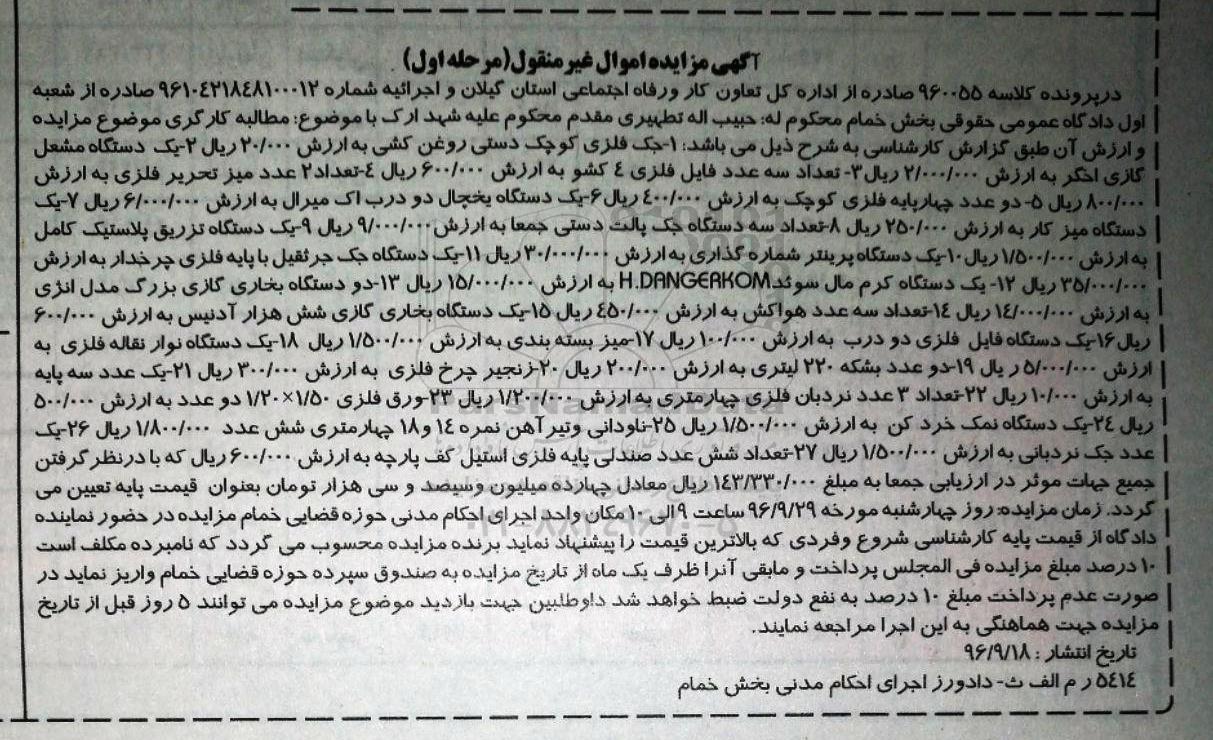 آگهی مزایده اموال غیر منقول(مرحله اول)
درپرونده کلاسه ۹۶۰۰۵۵ صادره از اداره کل تعاون کار ورفاه اجتماعی استان گیلان و اجرائیه شماره ۹۶۱۰۴۲۱۸۴۸۱۰۰۰۱۲ صادره از شعبه
اول دادگاه عمومی حقوقی بخش خمام محکوم له: حبیب اله تطهیری مقدم محکوم علیه شهد ارک با موضوع: مطالبه کارگری موضوع مزایده
و ارزش آن طبق گزارش کارشناسی به شرح ذیل می باشد: ۱-جک فلزی کوچک دستی روغن کشی به ارزش ۲۰/۰۰۰ ریال ۲-یک دستگاه مشعل
گازی اخگر به ارزش ۲/۰۰۰/۰۰۰ ریال۳- تعداد سه عدد فایل فلزی ۴ کشو به ارزش ۶۰۰/۰۰۰ ریال ۴-تعداد۲ عدد میز تحریر فلزی به ارزش
۸۰۰/۰۰۰ ریال ۵- دو عدد چهارپایه فلزی کوچک به ارزش ۴۰۰/۰۰۰ ریال۶-یک دستگاه یخچال دو درب اک میرال به ارزش ۶/۰۰۰/۰۰۰ ریال ۷-یک
دستگاه میز کار به ارزش ۲۵۰/۰۰۰ ریال ۸-تعداد سه دستگاه جک پالت دستی جمعا به ارزش۹/۰۰۰/۰۰۰ ریال ۹-یک دستگاه تزریق پلاستیک کامل
به ارزش ۱/۵۰۰/۰۰۰ ریال۱۰-یک دستگاه پرینتر شماره گذاری به ارزش ۳۰/۰۰۰/۰۰۰ ریال ۱۱-یک دستگاه جک جرثقیل با پایه فلزی چرخدار به ارزش
۳۵/۰۰۰/۰۰۰ ریال ۱۲- یک دستگاه کرم مال سوئدH.DANGERKOM به ارزش ۱۵/۰۰۰/۰۰۰ ریال ۱۳-دو دستگاه بخاری گازی بزرگ مدل انرژی
به ارزش ۱۴/۰۰۰/۰۰۰ ریال ۱۴-تعداد سه عدد هواکش به ارزش ۴۵۰/۰۰۰ ریال ۱۵-یک دستگاه بخاری گازی شش هزار آدنیس به ارزش ۶۰۰/۰۰۰
ریال۱۶-یک دستگاه فایل فلزی دو درب به ارزش ۱۰۰/۰۰۰ ریال ۱۷-میز بسته بندی به ارزش ۱/۵۰۰/۰۰۰ ریال ۱۸-یک دستگاه نوار نقاله فلزی به
ارزش ۵/۰۰۰/۰۰۰ ر یال ۱۹-دو عدد بشکه ۲۲۰ لیتری به ارزش ۲۰۰/۰۰۰ ریال ۲۰-زنجیر چرخ فلزی به ارزش ۳۰۰/۰۰۰ ریال ۲۱-یک عدد سه پایه
به ارزش ۱۰/۰۰۰ ریال ۲۲-تعداد ۳ عدد نردبان فلزی چهارمتری به ارزش ۱/۲۰۰/۰۰۰ ریال ۲۳-ورق فلزی ۱/۵۰×۱/۲۰ دو عدد به ارزش ۵۰۰/۰۰۰
ریال ۲۴-یک دستگاه نمک خرد کن به ارزش ۱/۵۰۰/۰۰۰ ریال ۲۵-ناودانی وتیرآهن نمره ۱۴ و۱۸ چهارمتری شش عدد ۱/۸۰۰/۰۰۰ ریال ۲۶-یک
عدد جک نردبانی به ارزش ۱/۵۰۰/۰۰۰ ریال ۲۷-تعداد شش عدد صندلی پایه فلزی استیل کف پارچه به ارزش ۶۰۰/۰۰۰ ریال که با درنظر گرفتن
جمیع جهات موثر در ارزیابی جمعا به مبلغ ۱۴۳/۳۳۰/۰۰۰ ریال معادل چهارده میلیون وسیصد و سی هزار تومان بعنوان قیمت پایه تعیین می
گردد. زمان مزایده: روز چهارشنبه مورخه ۹۶/۹/۲۹ ساعت ۹ الی ۱۰ مکان واحد اجرای احکام مدنی حوزه قضایی خمام مزایده در حضور نماینده
دادگاه از قیمت پایه کارشناسی شروع وفردی که بالاترین قیمت را پیشنهاد نماید برنده مزایده محسوب می گردد که نامبرده مکلف است
۱۰ درصد مبلغ مزایده فی المجلس پرداخت و مابقی آنرا ظرف یک ماه از تاریخ مزایده به صندوق سپرده حوزه قضایی خمام واریز نماید در
صورت عدم پرداخت مبلغ ۱۰ درصد به نفع دولت ضبط خواهد شد داوطلبین جهت بازدید موضوع مزایده می توانند ۵ روز قبل از تاریخ
مزایده جهت هماهنگی به این اجرا مراجعه نمایند.
تاریخ انتشار : ۹۶/۹/۱۸
۵۴۱۴ ر م الف ث- دادورز اجرای احکام مدنی بخش خمام